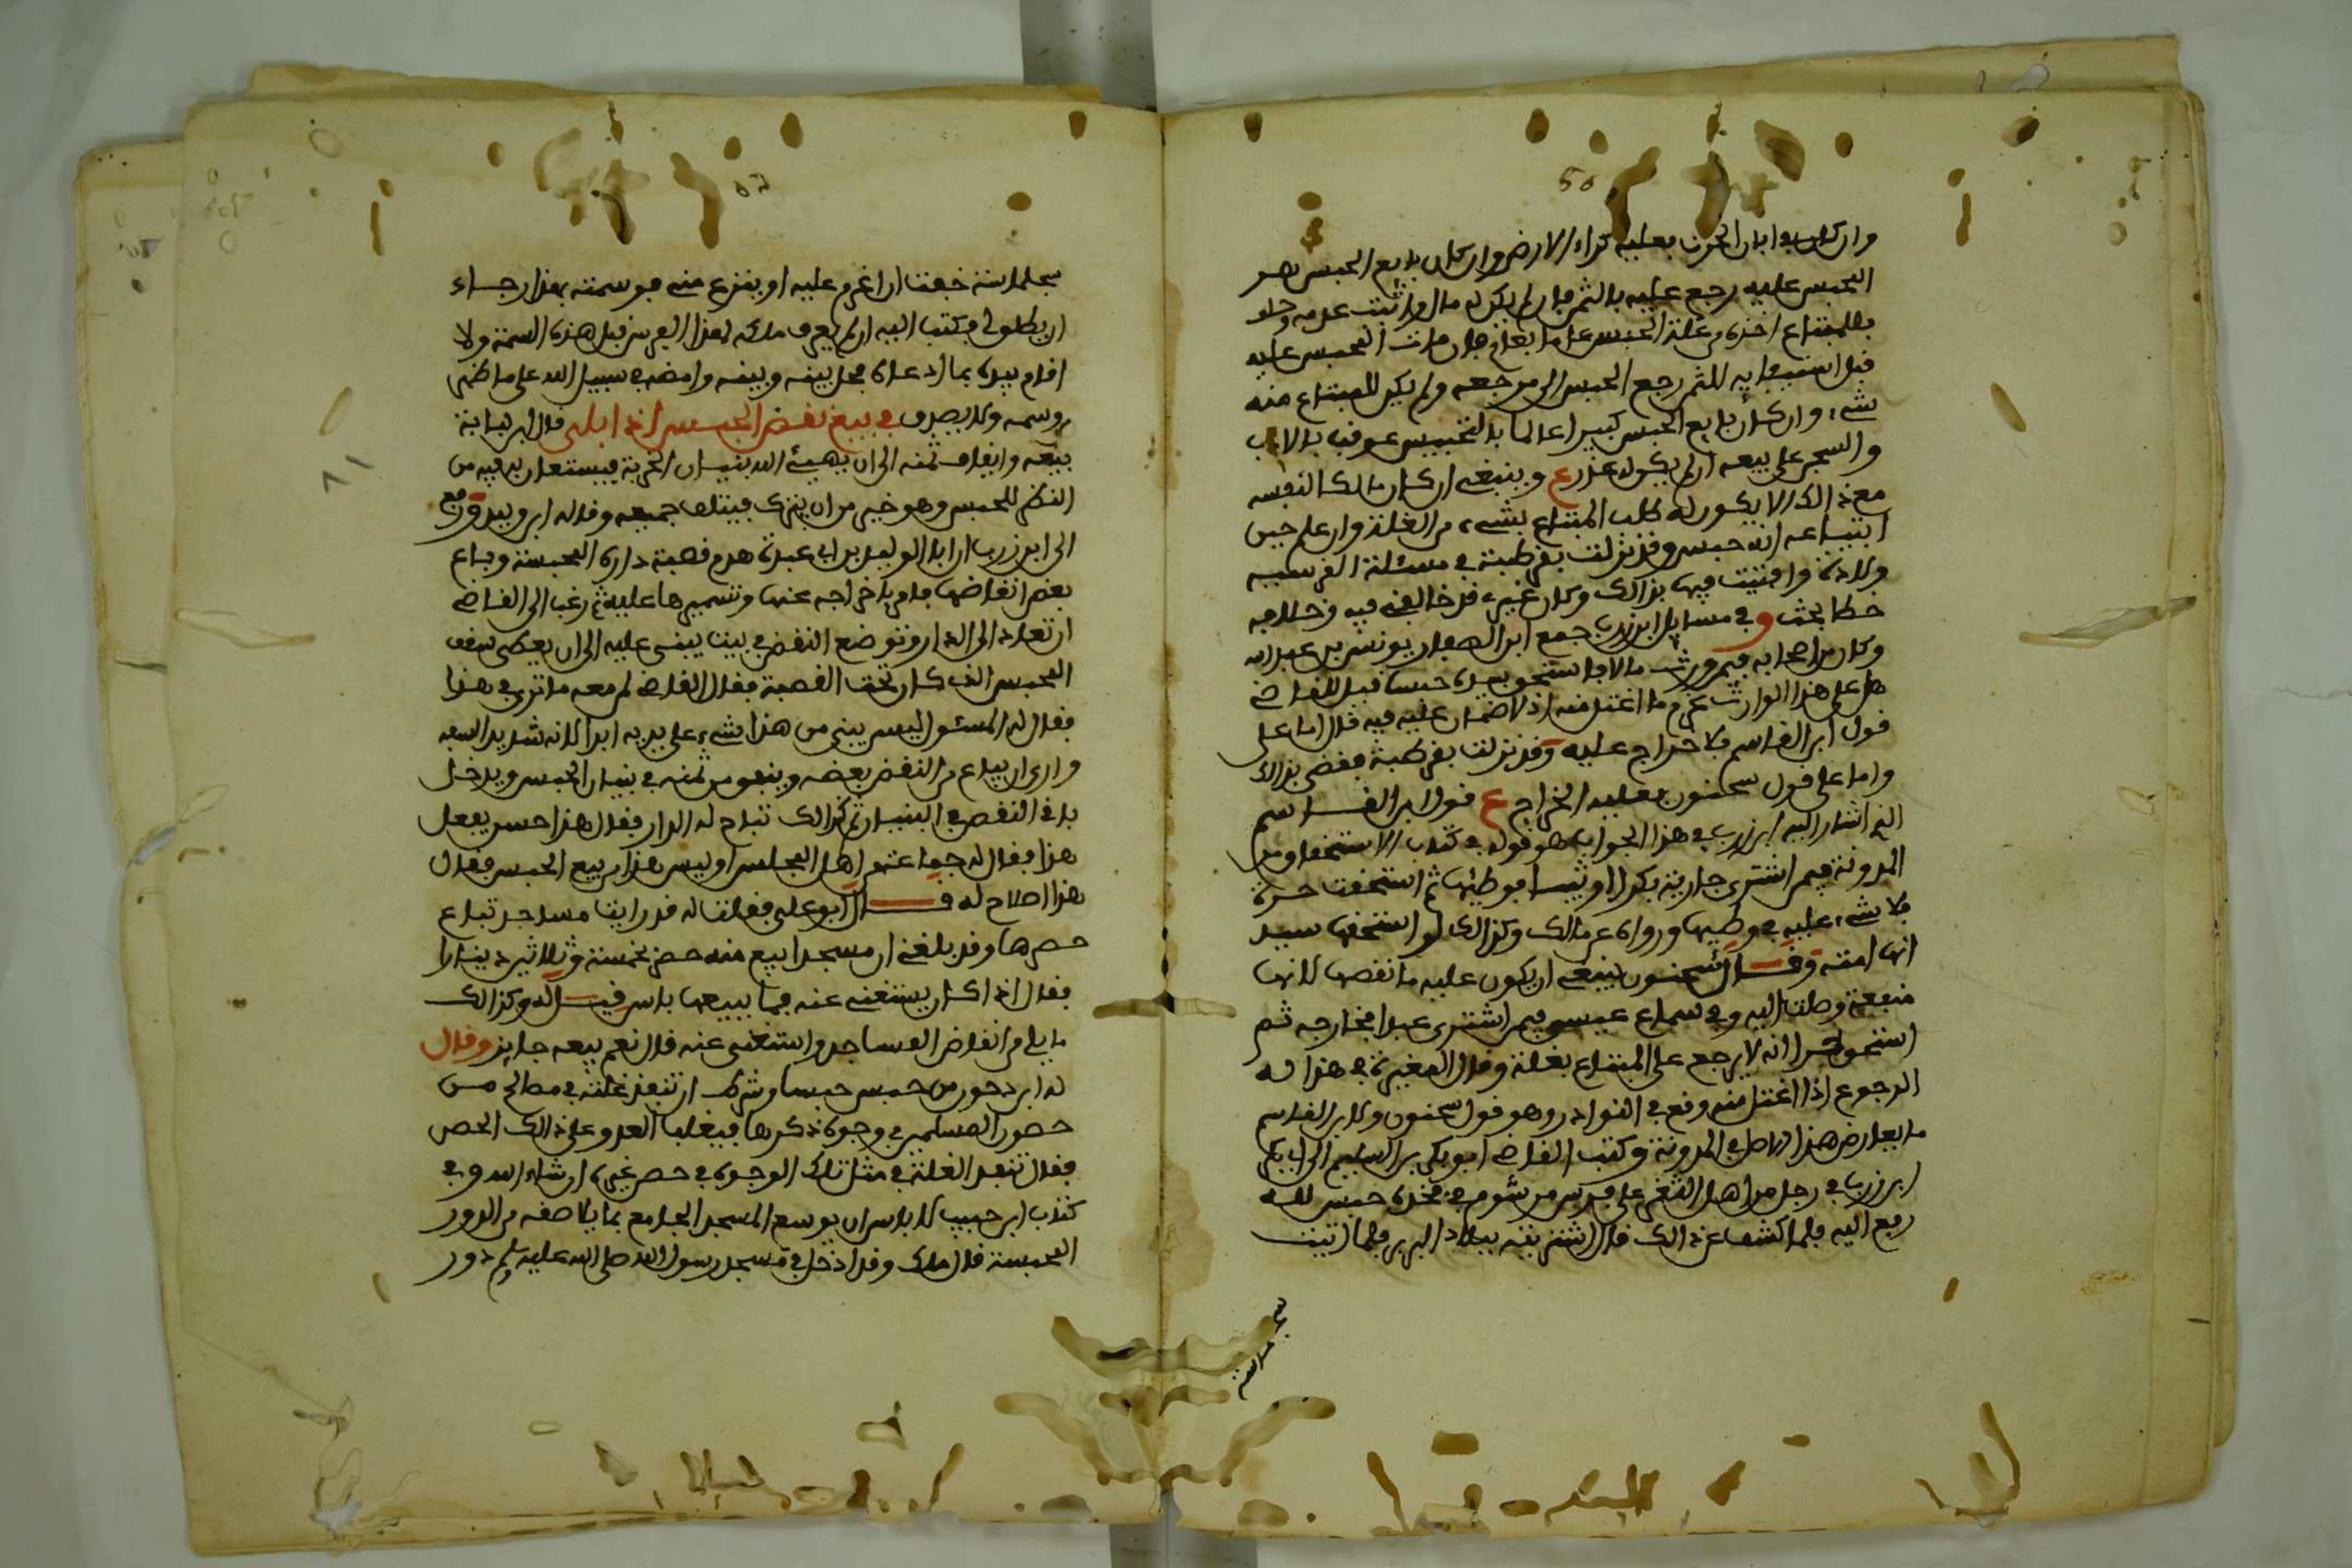 وان كان في ابان الحرث فعليه كراء الارض وان كان بايع الحبس هو
المحبس عليه رجع عليه بالثمن فان لم يكن له مال واثبت عدمه وحلف
فللمبتاع اخذه من غلة الحبس عاما بعام فان مات المحبس عليه
قبل استيفايه للثمن رجع الحبس الى مرجعه ولم يكن للمبتاع منه
شيء وان كان بايع الحبس كبيرا عالما بالتحبيس عوقب بالادب
والسجن على بيعه ان لم يكن له عذر ع وينبغي ان كان مالكا لنفسه
مع ذالك الا يكون له طلب المبتاع بشيء من الغلة وان علم حين
ابتياعه انه حبس وقد نزلت بقرطبة في مسئلة القرشيه
ولادة وافتيت فيها بذالك وكان غيري قد خالفني فيه وخلافه
خطا بحت وفي مسايل ابن زرب جمع ابن الصفار يونس بن عبد الله
وكان من اصحابه فيمن ورث مالا فاستحق بيده حبسا قيل للقاضي
هل على هذا الوارث غرم ما اغتل منه اذ لا ضمان عليه فيه قال اما على
قول ابن القاسم فلا خراج عليه وقد نزلت بقرطبة فقضي بذالك
واما على قول سحنون فعليه الخراج ع قول ابن القاسم
الذي اشار اليه ابن زرب في هذا الجواب هو قوله في كتاب الاستحقاق من
المدونة فيمن اشترى جارية بكرا او ثيبا فوطئها ثم استحقت حرة
فلا شيء عليه في وطيها ورواه عن مالك وكذالك لو استحقها سيد
انها امته وقال سحنون ينبغي ان يكون عليه ما نقصها لانها
منفعة وصلت اليه وفي سماع عيسى فيمن اشترى عبدا فخارجه ثم
استحق حرا انه لا يرجع على المبتاع بغلة وقال المغيرة في هذا له
الرجوع اذا اغتل منه وقع في النوادر وهو قول سحنون ولابن القاسم
ما يعارض هذا الاصل في المدونة وكتب القاضي ابو بكر بن السليم الى ابي بكر
ابن زرب في رجل من اهل الثغر على فرس موسوم في فخذه حبس لله
رفع اليه فلما كشف عن ذالك قال اشتريته ببلاد البربر فلما اتيت
سجلماسة
سجلماسة خفت ان اغرم عليه او ينزع مني فوسمته بهذا رجاء
ان يطلولي فكتب اليه ان لم يعرف ملكه لهذا الفرس قبل هذه السمة ولا
اقام بيده بما ادعاه فحل بينه وبينه وامضه في سبيل الله على ما ظهر
من وسمه ولا يصدق في بيع نقض الحبس اذا ابلى قال ابن لبابة
بيعه وايقاف ثمنه الى ان يهيئ الله بنيان الخربة فيستعان به فيه من
النظر للحبس وهو خير من ان يترك فيتلف جميعه وقاله ابن وليد ورفع
الى ابن زرب ان ابا الوليد بن ابي عبدة هدم قصبة داره المحبسة وباع
بعض انقاضها فامر باخراجه عنها وتسميرها عليه ثم رغب الى القاضي
ان تعاد الى الدار وتوضع النقض في بيت يبنى عليه الى ان يعطى سقف
المحبس الذي كان تحت القصبة فقال القاضي لمن معه ما ترى في هذا
فقال له المسئول ليس يبنى من هذا شيء على يديه ابدا لانه شديد السفه
وارى ان يباع من النقض بعضه وينفق من ثمنه في بنيان الحبس ويدخل
باقي النقض في البنيان ثم كذالك تباح له الدار فقال هذا حسن يفعل
هذا فقال له جماعة من اهل المجلس اوليس هذا من بيع الحبس فقال
هذا اصلاح له قال ابو علي فقلت له قد رايت مساجد تباع
حصرها وقد بلغني ان مسجدا بيع منه حصر بخمسة وثلاثين دينارا
فقال اذا كان يستغنى عنه فما ببيعها باس قيل له وكذالك
ما بلي من انقاض المساجد واستغنى عنه قال نعم بيعه جايز وقال
له ابن دحون من حبس حبسا وشرط ان تنفذ غلته في مصالح حصن من
حصون المسلمين في وجوه ذكرها فيغلب العدو على ذالك الحصن
فقال تنفذ الغلة في مثل تلك الوجوه في حصن غيره ان شاء الله وفي
كتاب ابن حبيب لا باس ان يوسع المسجد الجامع بما يلاصقه من الدور
المحبسة قال مالك وقد ادخل في مسجد رسول الله صلى الله عليه وسلم دور